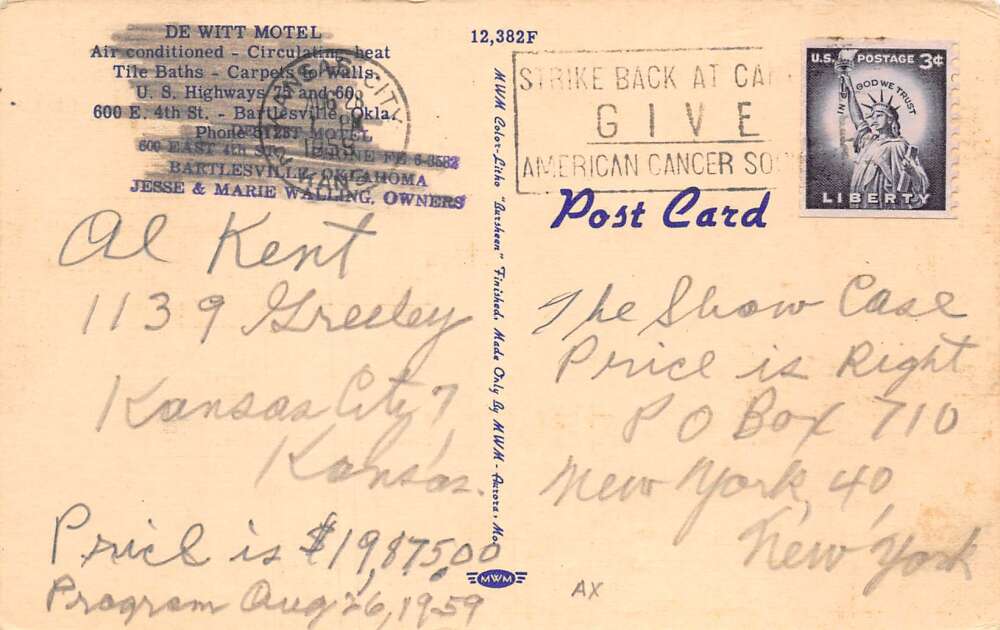 DE WITT MOTEL
Air conditioned - Circulating heat
Tile Baths - Carpets to Walls
U. S. Highways 75 and 60
600 E. 4th St. - Bartlesville, Okla.
Phone
MOTEL
600 EAST 4th PHONE FE 6-3582
BARTLESVILLE, OKLAHOMA
JESSE & MARIE WALLING, OWNERS
KANSAS CITY
1959
KANS
12,382F
STRIKE BACK AT CA
GIVE
AMERICAN CANCER SO
U.S. POSTAGE 3¢
IN GOD WE TRUST
LIBERTY
Post Card
MWM Color-Litho "Bursheen" Finished. Made Only By MWM - Aurora, Mo.
Al Kent
1139 Greeley
Kansas City 7
Kansas.
Price is $19,875.00
Program Aug 26, 1959
The Show Case
Price is Right
P O Box 710
New York, 40,
New York
MWM
AX